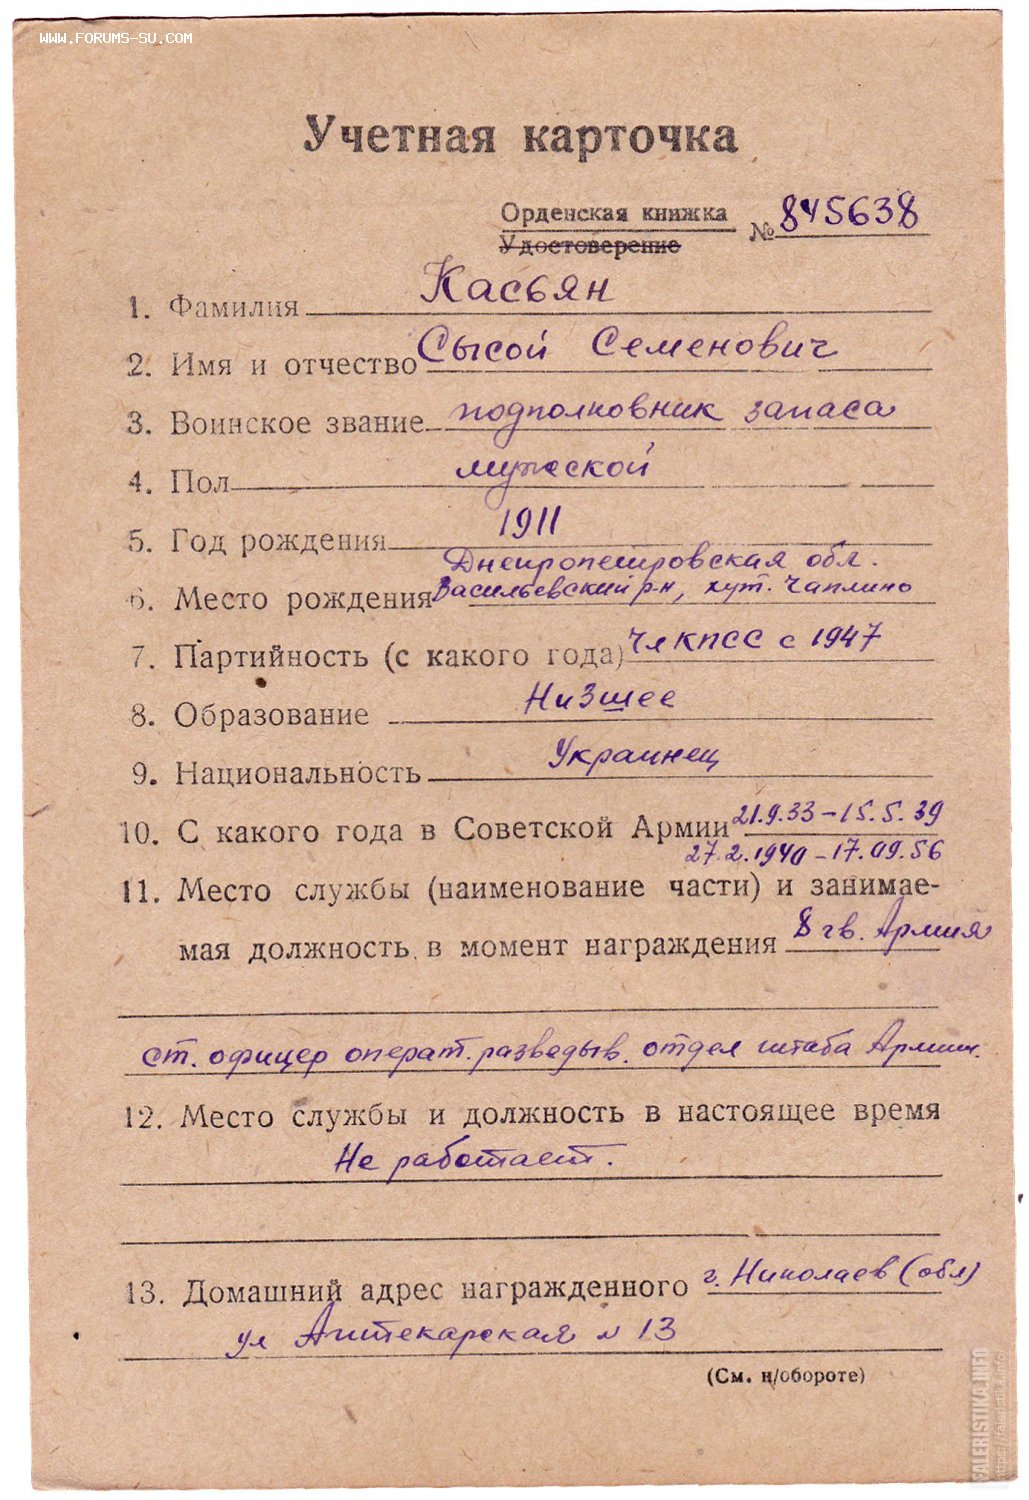 WWW.FORUMS-SU.COM
Учетная карточка
Орденская книжка
Удостоверение
№ 845638
1. Фамилия Касьян
2. Имя и отчество Сысой Семенович
3. Воинское звание подполковник запаса
4. Пол мужской
5. Год рождения 1911
Днепропетровская обл.
6. Место рождения Васильевский р-н, хут. Чаплино
7. Партийность (с какого года) Чл КПСС с 1947
8. Образование Низшее
9. Национальность Украинец
10. С какого года в Советской Армии 21.9.33 – 15.5.39
27.2.1940 – 17.09.56
11. Место службы (наименование части) и занимае-
мая должность в момент награждения 8 гв. Армия
ст. офицер операт. разведыв. отдел штаба Армии.
12. Место службы и должность в настоящее время
Не работает.
13. Домашний адрес награжденного г. Николаев (обл)
ул Аптекарская № 13
(См. н/обороте)
FALERISTIKA.INFO
https://faleristika.info/